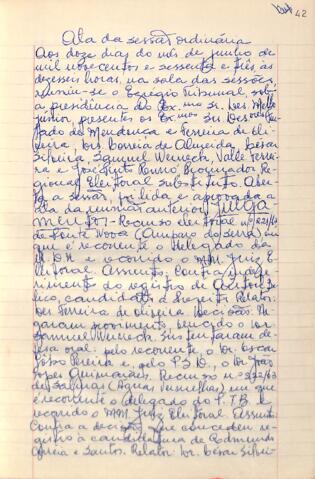 42
Ata da sessão ordinária
Aos doze dias do mês de junho de
mil novecentos e sessenta e três, às
dezesseis horas, na sala das sessões,
reuniu-se o Egrégio Tribunal, sob
a presidência do Exmo Sr. Des. Mello
Junior, presentes os Exmos Srs. Desores
de Mendonça e Ferreira de Oli-
veira, Drs. Correia de Almeida, César
Silveira, Samuel Werneck, Valle Ferrei-
ra e Procurador
Regional Eleitoral substituto. Aber-
ta a sessão, foi lida e aprovada a
ata da reunião anterior. Julga-
mentos - Recurso eleitoral nº
de Ponte Nova (Amparo do Serra) em
que é recorrente o Delegado da
U.D.N. e recorrido o MM. Juiz E-
leitoral. Assunto: Contra
rimento do registro de
candidato a Prefeito. Relator:
Des. Ferreira de Oliveira. Decisão: Ne-
garam provimento, vencido o Dr.
Samuel Werneck. Sustentaram de-
fesa oral: pelo recorrente, o Dr. Oscar
Pereira e, pelo P.S.D., o Dr. João
Lopes Guimarães. Recurso nº
de Salinas (Águas Vermelhas) em que
é recorrente o delegado do P.T.B. e
recorrido o MM. Juiz Eleitoral. Assunto:
Contra a decisão que concedeu re-
gistro à candidatura de Radmundo
Correia e Santos. Relator: Dr. César Silvei-